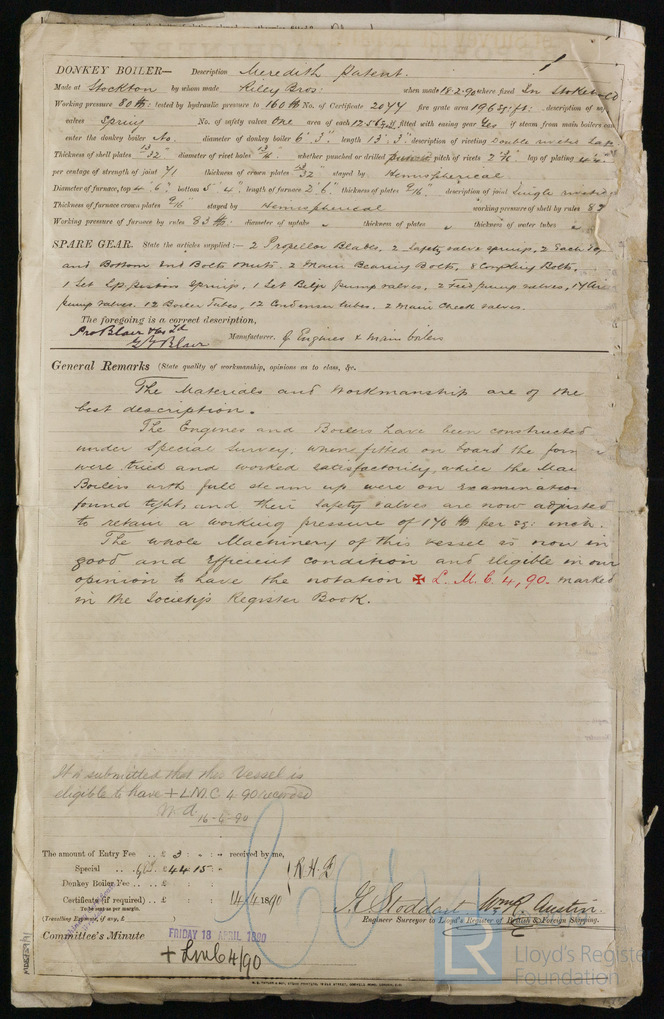 DONKEY BOILER— Description Meredith Patent.
Made at Stockton by whom made Riley Bros: when made 18·2·90 where fixed In Stokehold
Working pressure 80 lb: tested by hydraulic pressure to 160 lb No. of Certificate 2077 fire grate area 19 6 sq: ft: description of
valves Spring No. of safety valves One area of each fitted with easing gear Yes if steam from main boilers can
enter the donkey boiler No. diameter of donkey boiler 6' 3" length 13' 3" description of riveting Double riveted Lap
Thickness of shell plates 13/32" diameter of rivet holes 13/16" whether punched or drilled pitch of rivets lap of plating
per centage of strength of joint 71 thickness of crown plates 13/32 stayed by Hemispherical
Diameter of furnace, top 4' 6" bottom 5' 4" length of furnace 2' 6" thickness of plates 9/16" description of joint Single riveted
Thickness of furnace crown plates 9/16" stayed by Hemispherical working pressure of shell by rules
Working pressure of furnace by rules 83 lb: diameter of uptake " thickness of plates " thickness of water tubes "
SPARE GEAR. State the articles supplied:— 2 Propellor Blades, 2 Safety valve springs, 2 Each Top
and Bottom End Bolts & Nuts. 2 Main Bearing Bolts, 8 Coupling Bolts,
1 Set piston Springs, 1 Set Bilge pump valves, 2 Feed pump valves, 1 Air
pump valves. 12 Boiler Tubes, 12 Condenser tubes. 2 Main Check valves.
The foregoing is a correct description,
Pro Blair & Co Ld
G Y Blair Manufacturer. of Engines & main boilers
General Remarks (State quality of workmanship, opinions as to class, &c.
The Materials and Workmanship are of the
best description.
The Engines and Boilers have been constructed
under Special Survey, when fitted on board the
were tried and worked satisfactorily, while the Main
Boilers with full steam up were on examination
found tight, and their Safety valves are now adjusted
to retain a working pressure of 170 lb per sq: inch.
The whole Machinery of this vessel is now in
good and efficient condition and eligible in our
opinion to have the notation ✠ L. M. C. 4, 90. marked
in the Society's Register Book.
It is submitted that this Vessel is
eligible to have + LMC 4 90 recorded
16-4-90
The amount of Entry Fee .. £ 3 : - : - received by me,
Special .. £ 44 15 : R. H. A.
Donkey Boiler Fee .. £ : :
Certificate (if required) .. £ : : 14/4 1890
To be sent as per margin.
(Travelling Expenses, if any, £ )
J. E. Stoddart Wm R. Austin.
Engineer Surveyor to Lloyd's Register of British & Foreign Shipping.
Committee's Minute
FRIDAY 18 APRIL 1890
+ Lmc 4/90
LR
Lloyd's Register
Foundation